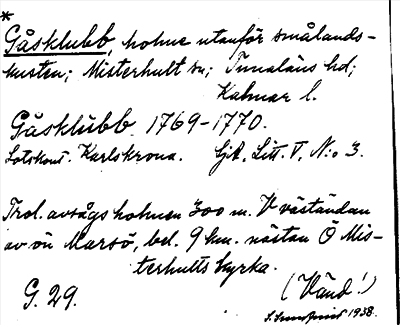 *
Gåsklubb, holme utanför smålands-
kusten; Misterhult sn; Tunaläns hd;
Kalmar l.
Gåsklubb. 1769-1770.
Lotskont. Karlskrona. SjA. Litt. V, N:o 3.
Trol. avsågs holmen 300 m. V väständan
av ön Marsö, bel. 9 km. nästan Ö Mis-
terhults kyrka.
G. 29.
(Vänd!)
1938.